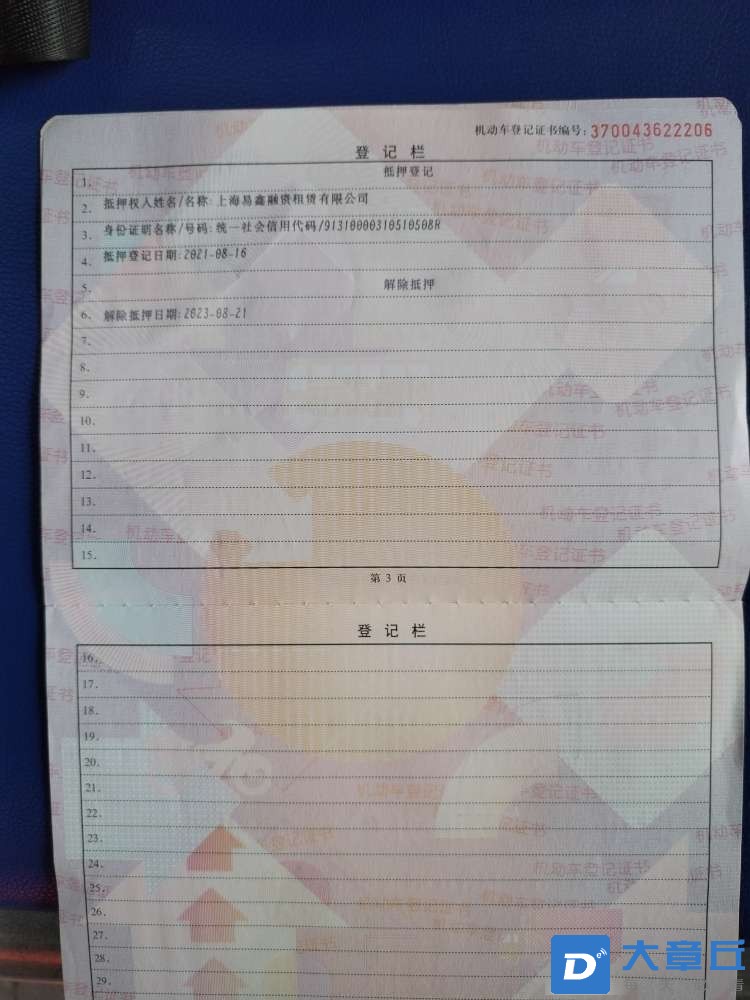 机动车登记证书编号：370043622206
登 记 栏
1. 抵押登记
2. 抵押权人姓名/名称：上海易鑫融资租赁有限公司
3. 身份证明名称/号码：统一社会信用代码/91310000310510508R
4. 抵押登记日期：2021-08-16
5. 解除抵押
6. 解除抵押日期：2023-08-21
7.
8.
9.
10.
11.
12.
13.
14.
15.
第 3 页
登 记 栏
16.
17.
18.
19.
20.
21.
22.
23.
24.
25.
26.
27.
28.
29.
大章丘